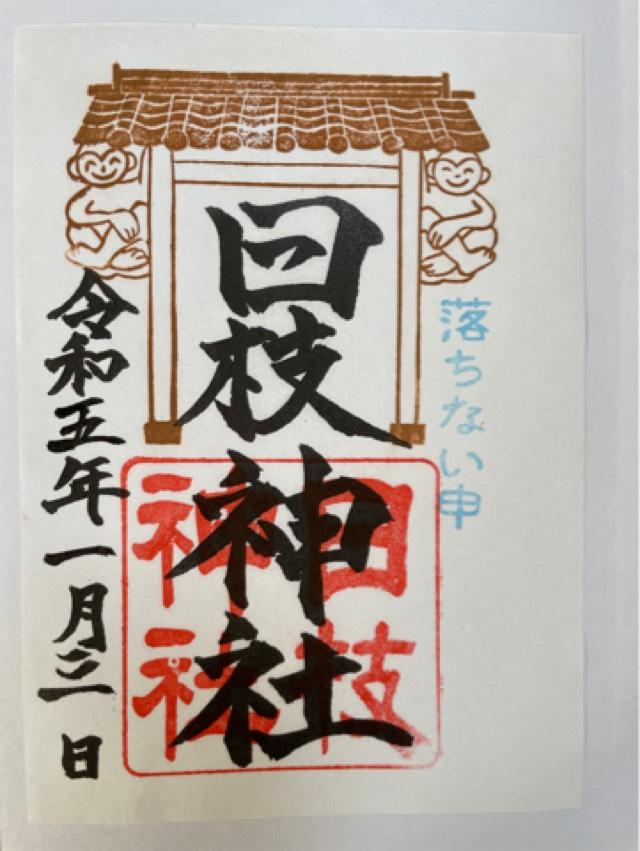 落ちない申
日枝神社
日枝
神社
令和五年一月三日